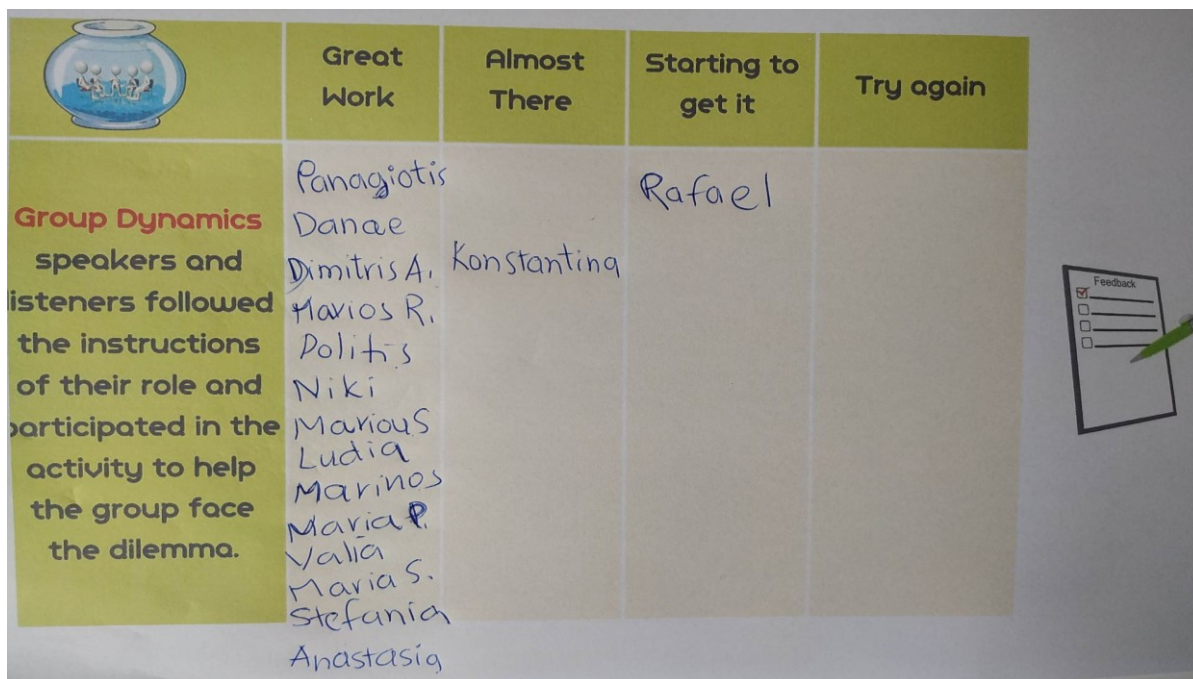 Great
Work
Almost
There
Starting to
get it
Try again
Group Dynamics
speakers and
isteners followed
the instructions
of their role and
participated in the
activity to help
the group face
the dilemma.
Panagiotis
Danae
Dimitris A.
Marios R.
Politis
Niki
Marious
Ludia
Marinos
Maria P.
Valia
Maria S.
Stefania
Anastasia
Konstantina
Rafael
Feedback